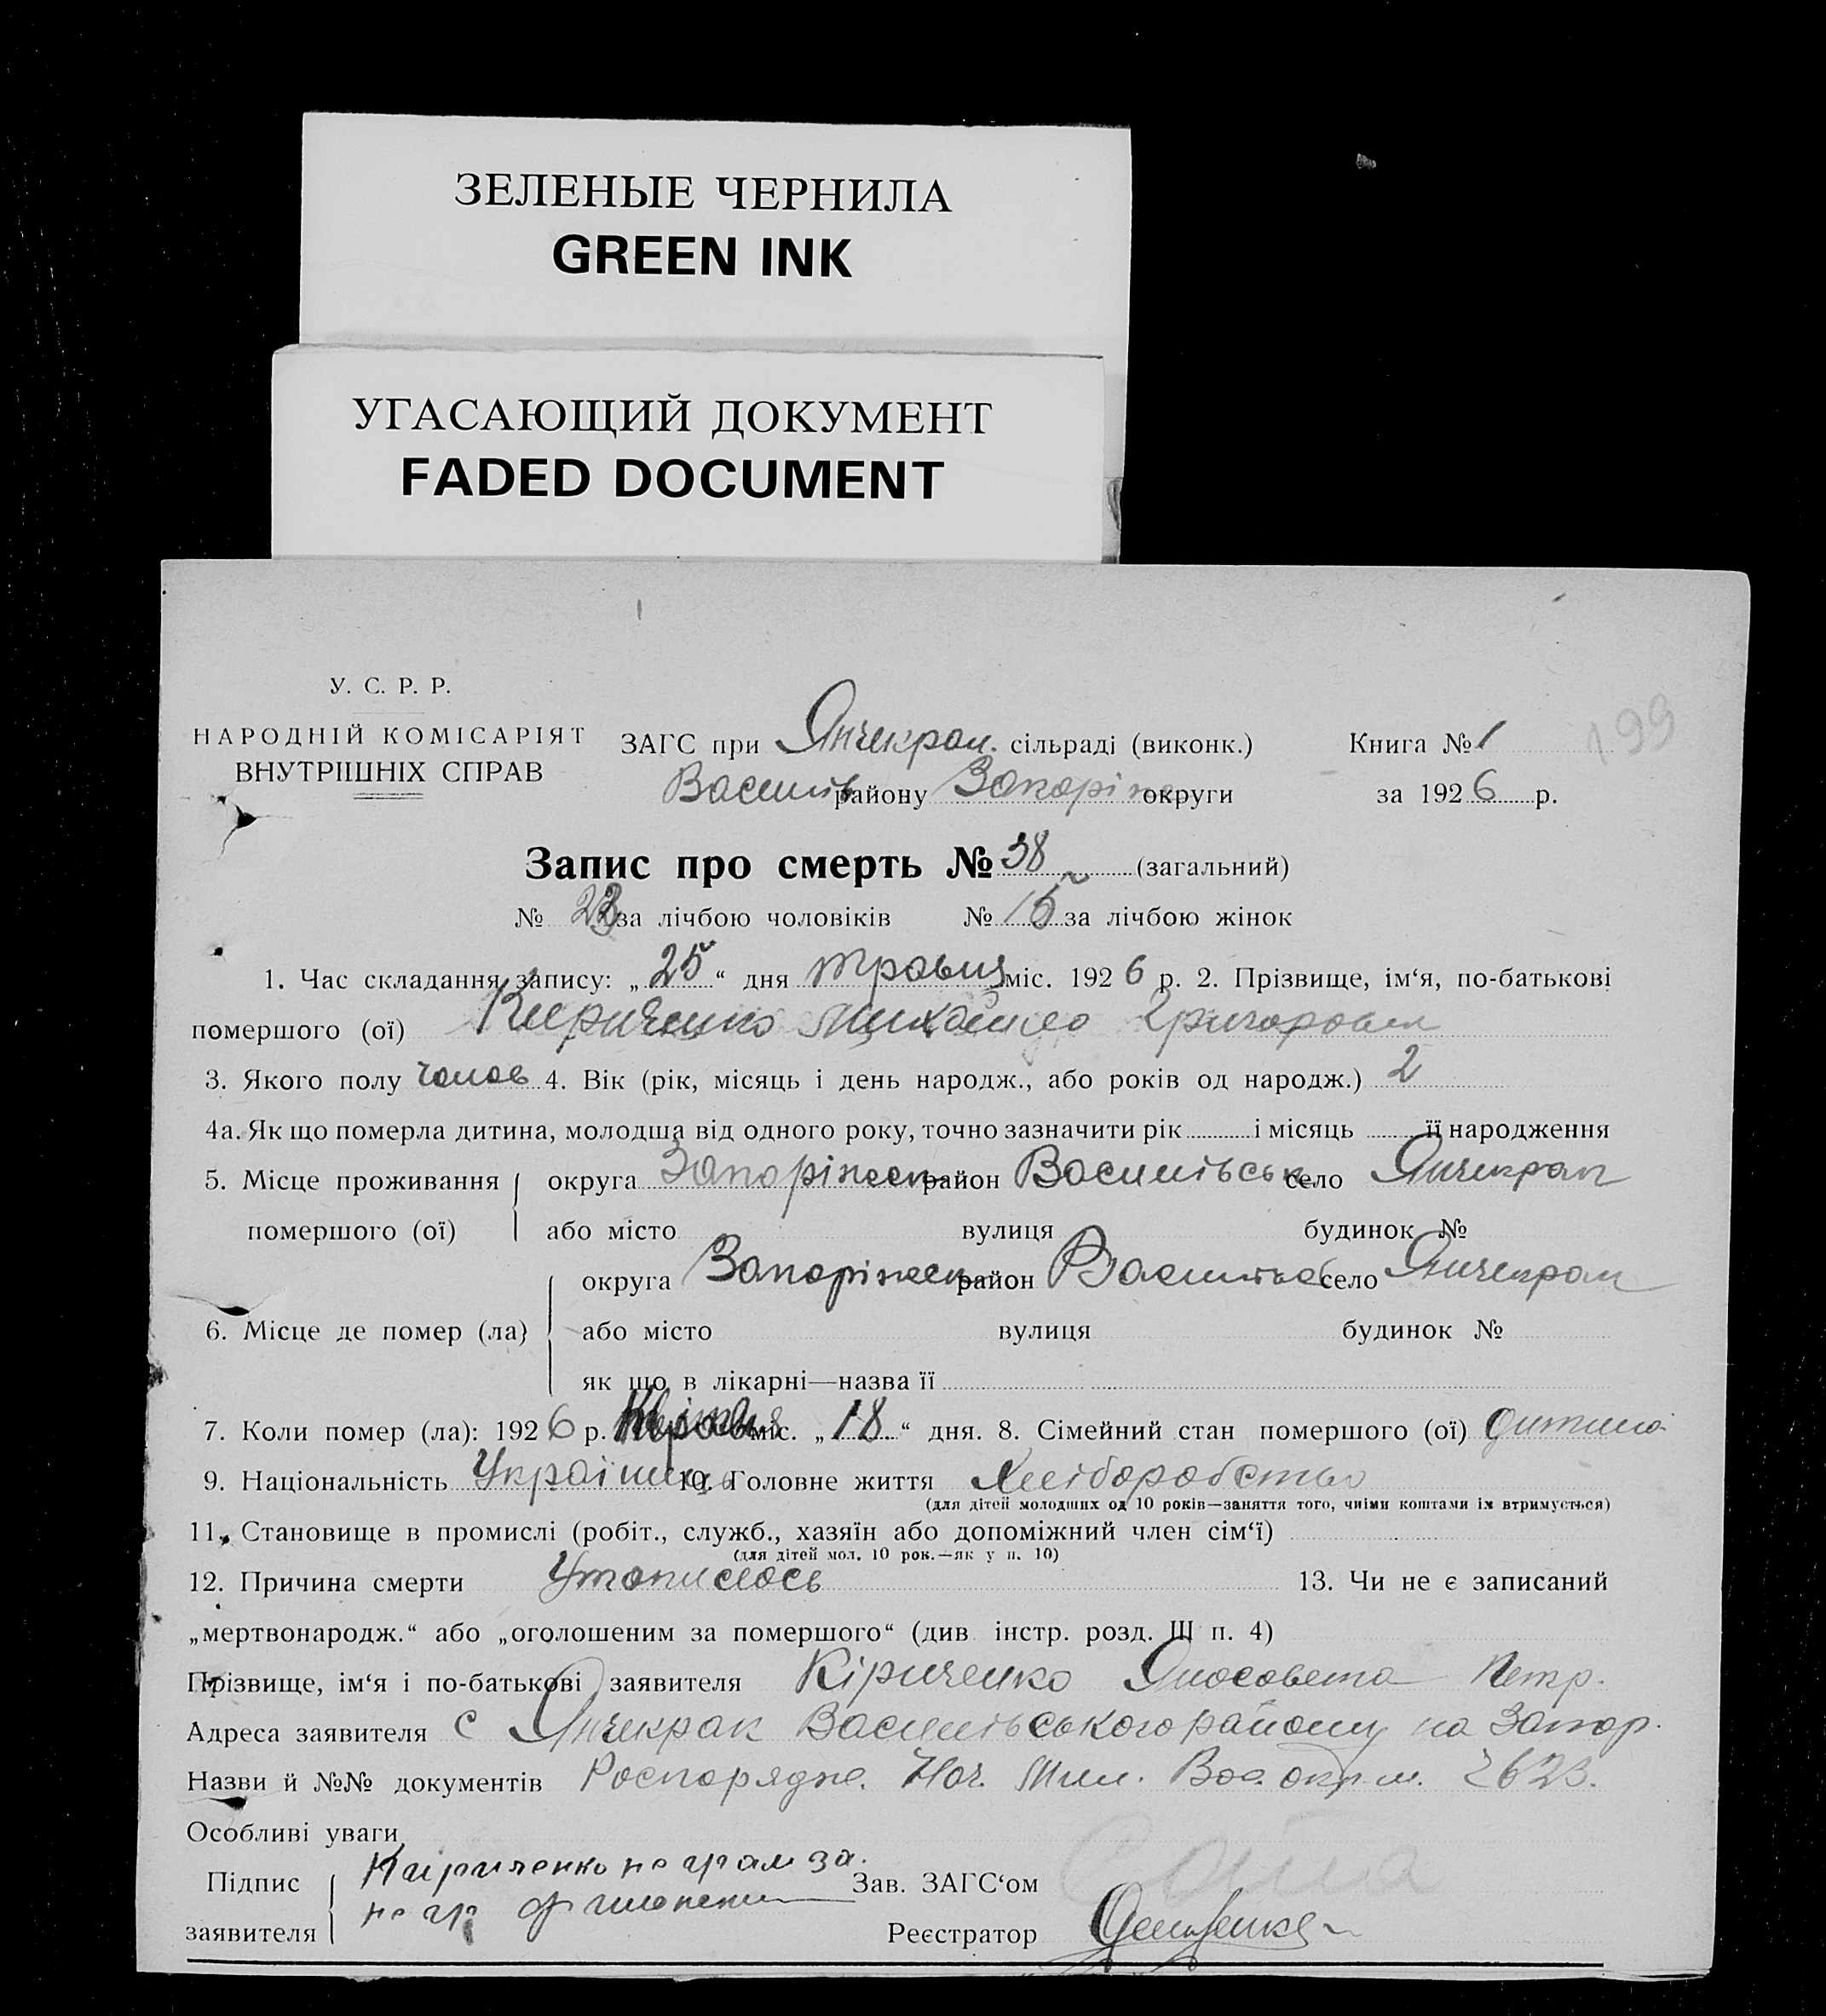 ЗЕЛЕНЫЕ ЧЕРНИЛА
GREEN INK
УГАСАЮЩИЙ ДОКУМЕНТ
FADED DOCUMENT
У. С. Р. Р.
НАРОДНІЙ КОМІСАРІЯТ
ВНУТРІШНІХ СПРАВ
ЗАГС при Янчекрак. сільраді (виконк.) Книга № 1 199
Василів району Запоріж округи за 1926 р.
Запис про смерть № 38 (загальний)
№ 23 за лічбою чоловіків № 15 за лічбою жінок
1. Час складання запису: „25“ дня травня міс. 1926 р. 2. Прізвище, ім‘я, по-батькові
помершого (ої) Кириченко Михайло Григорович
3. Якого полу чолов 4. Вік (рік, місяць і день народж., або років од народж.) 2
4а. Як що померла дитина, молодша від одного року, точно зазначити рік і місяць її народження
5. Місце проживання округа Запоріжськ район Василівськ село Янчекрак
помершого (ої) або місто вулиця будинок №
округа Запоріжськ район Василівськ село Янчекрак
6. Місце де помер (ла) або місто вулиця будинок №
як що в лікарні—назва її
7. Коли помер (ла): 1926 р. міс. „18“ дня. 8. Сімейний стан помершого (ої) дитина
9. Національність Українець 10. Головне життя Хліборобство
(для дітей молодших од 10 років—заняття того, чиїми коштами їх втримується)
11. Становище в промислі (робіт., служб., хазяїн або допоміжний член сім‘ї)
(для дітей мол. 10 рок.—як у п. 10)
12. Причина смерти Утопилось 13. Чи не є записаний
„мертвонародж.“ або „оголошеним за помершого“ (див інстр. розд. III п. 4)
Прізвище, ім‘я і по-батькові заявителя Кіриченко Петр.
Адреса заявителя с Янчекрак Василівського району на Запор.
Назви й №№ документів Роспорядж. Нач. Мил. 2623.
Особливі уваги
Підпис Кириченко не грам за.
заявителя не гр
Зав. ЗАГС‘ом
Реєстратор